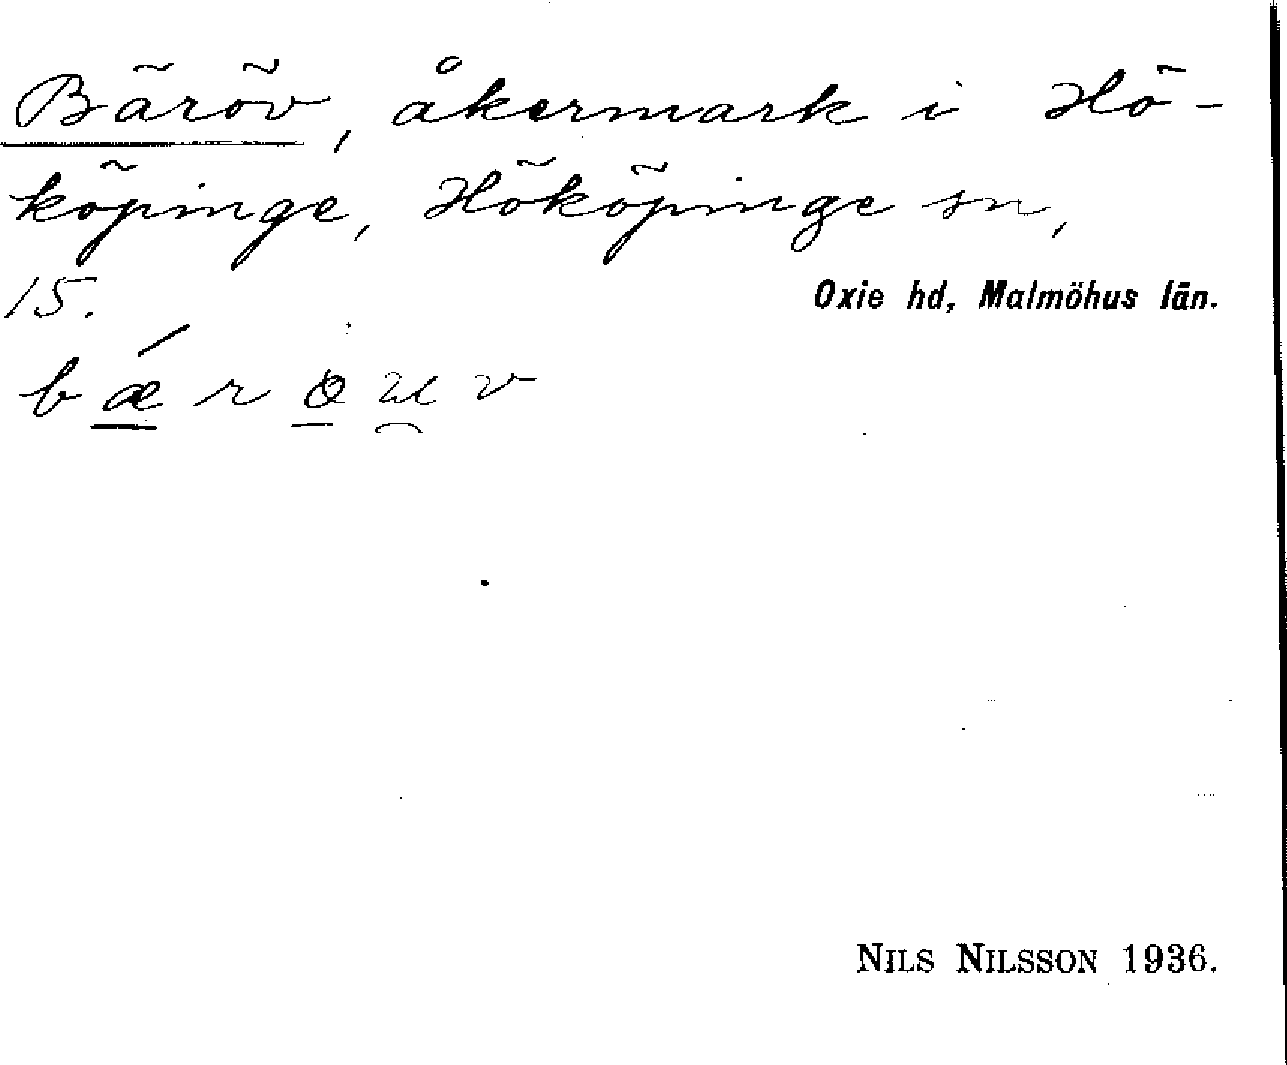 Bäröv, åkermark i Hö-
köpinge, Hököpinge sn,
15. Oxie hd, Malmöhus län.
bǽrɵuv
NILS NILSSON 1936.